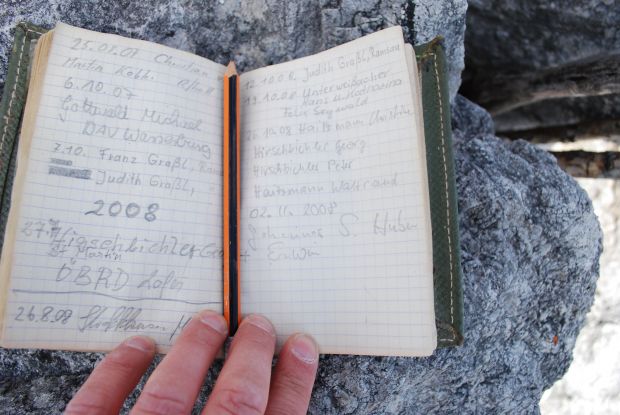 25.09.07 Christian
Martin
6.10.07
Gottwald Michael
DAV Wasserburg
7.10. Franz Graßl, Ramsau
Judith Graßl,
2008
27.7.
Hirschbichler
St. Martin
ÖBRD Lofer
26.8.08
12.10.08 Judith Graßl, Ramsau
19.10.08 Unterweißbacher
Hans u.
Felix Seywald
26.10.08 Haitzmann Christine
Hirschbichler Georg
Hirschbichler Peter
Haitzmann Waltraud
02.11.2008
Johannes S. Huber
Erwin